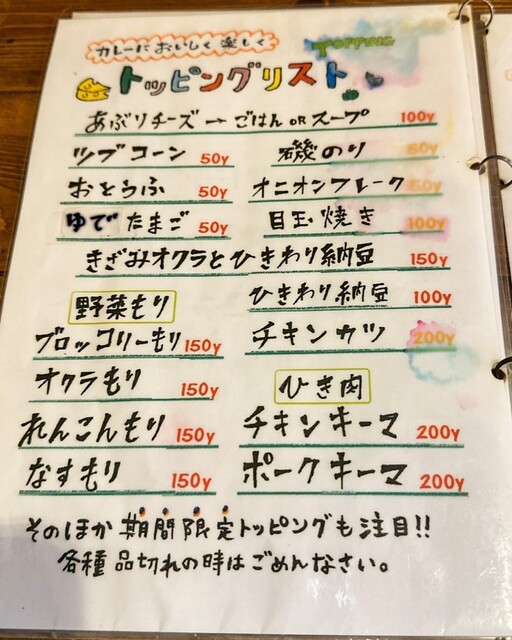 カレーにおいしく楽しく
TOPPING
トッピングリスト
あぶりチーズ → ごはん OR スープ 100y
ツブコーン 50y
磯のり 50y
おとうふ 50y
オニオンフレーク 50y
ゆでたまご 50y
目玉焼き 100y
きざみオクラとひきわり納豆 150y
野菜もり
ひきわり納豆 100y
ブロッコリーもり 150y
チキンカツ 200y
オクラもり 150y
ひき肉
れんこんもり 150y
チキンキーマ 200y
なすもり 150y
ポークキーマ 200y
そのほか期間限定トッピングも注目!!
各種品切れの時はごめんなさい。